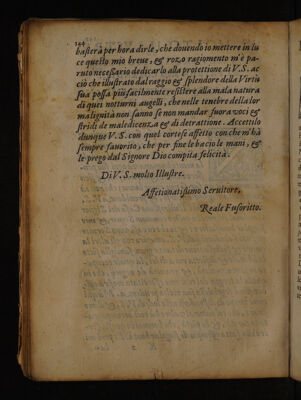 144
basterà per hora dirle, che douendo io mettere in lu
ce questo mio breue, & rozo ragiomento m'è pa-
ruto necessario dedicarlo alla protettione di V.S. ac
ciò che illustrato dal raggio & splendore della Virtù
sua possa più facilmente resistere alla mala natura
di quei notturni augelli, che nelle tenebre della lor
malignità non sanno se non mandar fuora voci &
stridi de maledicenza & di detrattione. Accettilo
dunque V.S. con quel cortese affetto con che m'hà
sempre fauorito, che per fine le bacio le mani, &
le prego dal Signore Dio compita felicità.
Di V.S. molto Illustre.
Affetionatissimo Seruitore,
Reale Fusoritto.